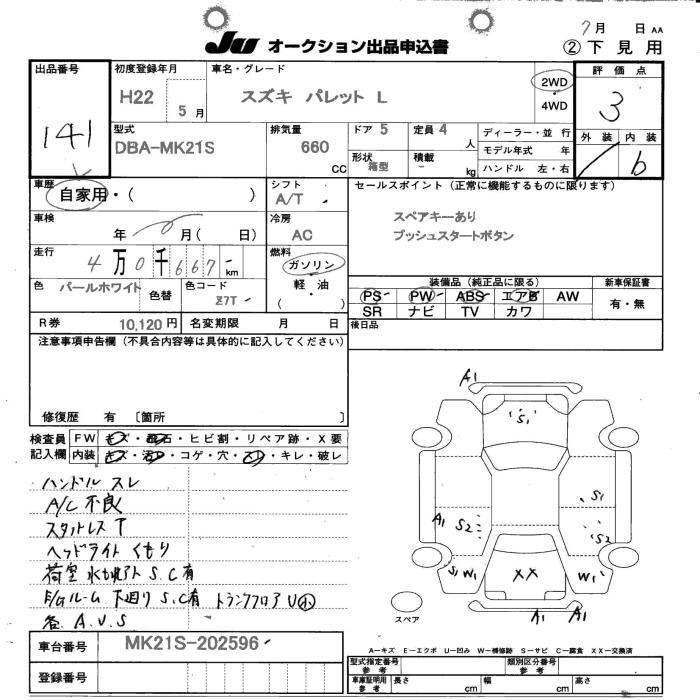 7月 日 AA
Ju オークション出品申込書 ②下見用
出品番号 141
初度登録年月 H22 5月
車名・グレード スズキ パレット L
2WD
4WD
評価点 3
外装 内装
b
型式 DBA-MK21S
排気量 660 CC
ドア 5
定員 4 人
形状 箱型
積載 - kg
ディーラー・並行
モデル年式 年
ハンドル 左・右
車歴 自家用・( )
シフト A/T
車検 年 月( 日)
冷房 AC
セールスポイント (正常に機能するものに限ります)
スペアキーあり
プッシュスタートボタン
走行 4万0千667 km
燃料 ガソリン
軽油
( )
色 パールホワイト 色替
色コード Z7T
装備品 (純正品に限る) 新車保証書
PS PW ABS エアB AW
SR ナビ TV カワ
有・無
R券 10,120円 名変期限 月 日
後日品
注意事項申告欄 (不具合内容等は具体的に記入してください)
修復歴 有 〔箇所 〕
検査員記入欄
FW キズ・飛石・ヒビ割・リペア跡・X要
内装 キズ・汚レ・コゲ・穴・スレ・キレ・破レ
ハンドル スレ
A/C 不良
スタットレス T
ヘッドライト くもり
荷室 水もれアト S.C有
E/Gルーム 下廻り S.C有 トランクフロア U小
各 A.U.S
A1
S1
S1
A1 S2
S2
S1 W1
XX
W1
A1 A1
スペア
A-キズ E-エクボ U-凹み W-補修跡 S-サビ C-腐食 XX-交換済
車台番号 MK21S-202596
登録番号
型式指定番号 参考
類別区分番号 参考
車庫証明用 参考
長さ cm 幅 cm 高さ cm